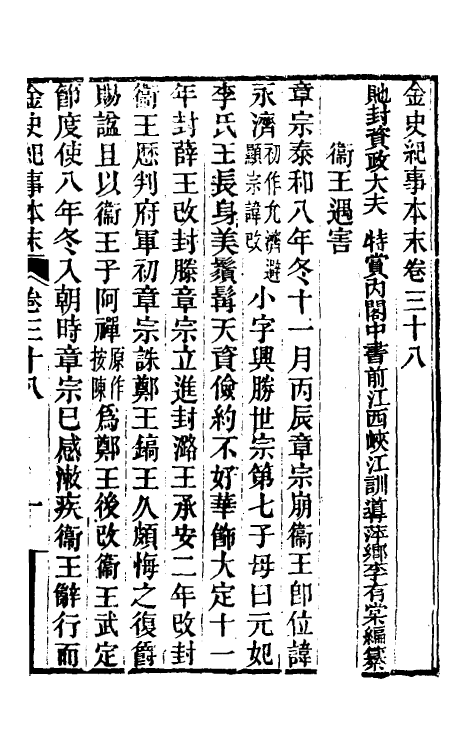 金史紀事本末卷三十八
貤封資政大夫　特賞內閣中書前江西峽江訓導萍鄉李有棠編纂
衞王遇害
章宗泰和八年冬十一月丙辰章宗崩衞王卽位諱
永濟初作允濟避顯宗諱改小字興勝世宗第七子母曰元妃
李氏王長身美鬚髯天資儉約不好華飾大定十一
年封薛王改封滕章宗立進封潞王承安二年改封
衞王歷判府軍初章宗誅鄭王鎬王久頗悔之復爵
賜諡且以衞王子阿禪原作按陳爲鄭王後改衞王武定
節度使八年冬入朝時章宗已感漱疾衞王辭行而
金史紀事本末　卷三十八　一